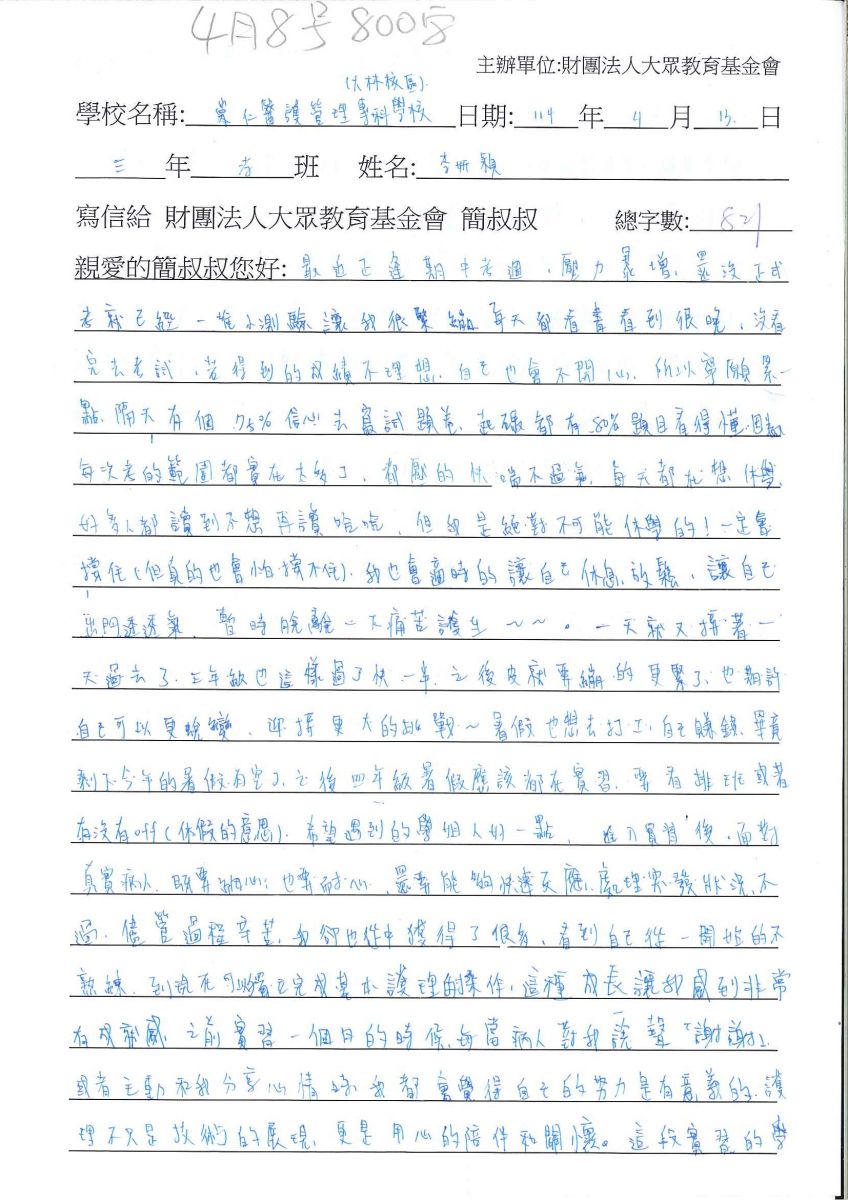 4月8号 800字
主辦單位:財團法人大眾教育基金會
(大林校區)
學校名稱: 崇仁醫護管理專科學校 日期: 114 年 4 月 13 日
三 年 孝 班 姓名: 李姍穎
寫信給 財團法人大眾教育基金會 簡叔叔 總字數: 821
親愛的簡叔叔您好: 最近正逢期中考週，壓力暴增，還沒正式
考就已經一堆小測驗讓我很緊繃，每天都看書看到很晚，沒看
完去考試，若得到的成績不理想，自己也會不開心，所以寧願累一
點，隔天有個75%信心去寫試題卷，起碼都有80%題目看得懂，因為
每次考的範圍都實在太多了，都壓的快喘不過氣，每天都在想休學，
好多人都讀到不想再讀哈哈，但我是絕對不可能休學的！一定會
撐住(但真的也會怕撐不住)，我也會適時的讓自己休息、放鬆，讓自己
出門透透氣，暫時脫離一下痛苦護生～～。一天就又接著一
天過去了，三年級也這樣過了快一半，之後皮就要繃的更緊了，也期許
自己可以更蛻變，迎接更大的挑戰～暑假也想去打工，自己賺錢，畢竟
剩下今年的暑假有空了，之後四年級暑假應該都在實習，要看排班或者
有沒有off(休假的意思)，希望遇到的學姐人好一點，進入實習後，面對
真實病人，既要細心；也要耐心，還要能夠快速反應、處理突發狀況，不
過，儘管過程辛苦，我卻也從中獲得了很多，看到自己從一開始的不
熟練，到現在可以獨立完成基本護理的操作，這種成長讓我感到非常
有成就感，之前實習一個月的時候，每當病人對我說聲「謝謝」，
或者主動和我分享心情時，我都會覺得自己的努力是有意義的，護
理不只是技術的展現，更是用心的陪伴和關懷。這段實習的學